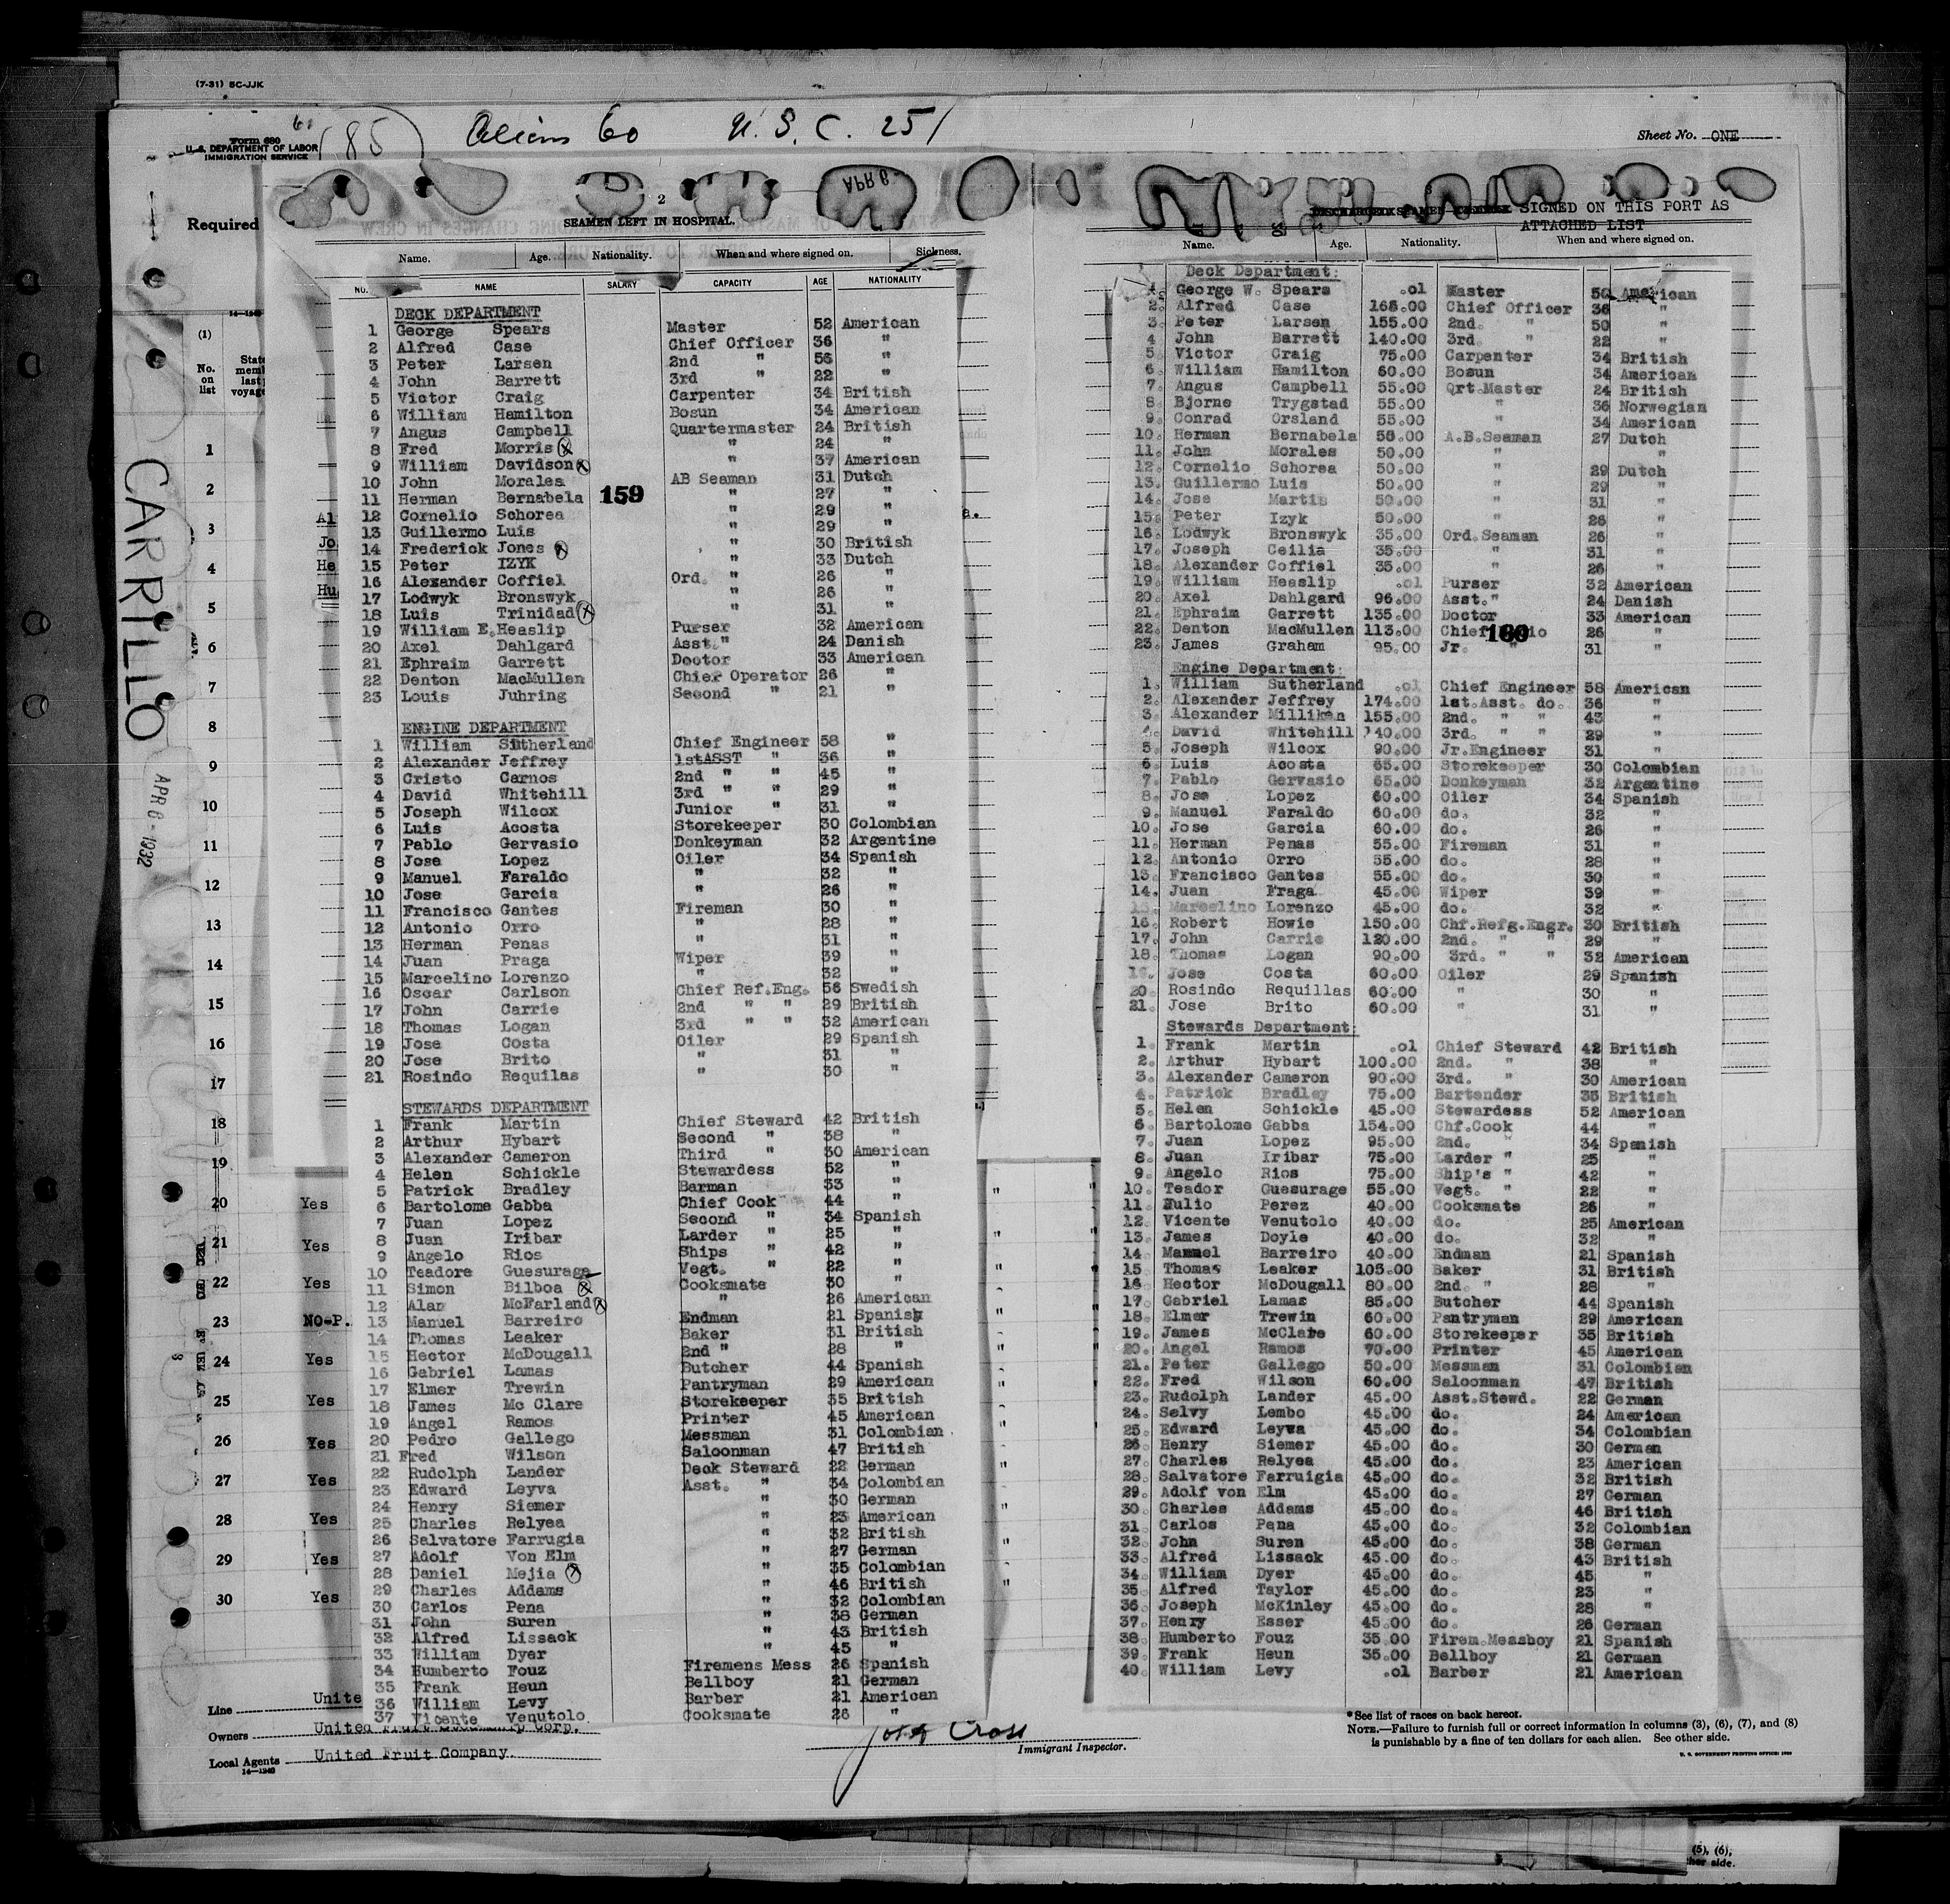 (7-31) 5C-JJK
Form 680
U. S. DEPARTMENT OF LABOR
IMMIGRATION SERVICE
60
(85)
Aliens 60 U. S. C. 25
Sheet No. ONE
Required
(1)
No. on list
CARRILLO
APR 6 - 1932
APR 6
2
SEAMEN LEFT IN HOSPITAL.
Name. Age. Nationality. When and where signed on. Sickness.
NO. NAME SALARY CAPACITY AGE NATIONALITY
DECK DEPARTMENT
1 George Spears Master 52 American
2 Alfred Case Chief Officer 36 "
3 Peter Larsen 2nd " 56 "
4 John Barrett 3rd " 22 "
5 Victor Craig Carpenter 34 British
6 William Hamilton Bosun 34 American
7 Angus Campbell Quartermaster 24 British
8 Fred Morris " 24 "
9 William Davidson " 37 American
10 John Morales AB Seaman 31 Dutch
11 Herman Bernabela " 27 "
159
12 Cornelio Schorea " 29 "
13 Guillermo Luis " 29 "
14 Frederick Jones " 30 British
15 Peter IZYK " 33 Dutch
16 Alexander Coffiel Ord. " 26 "
17 Lodwyk Bronswyk " 26 "
18 Luis Trinidad " 31 "
19 William E. Heaslip Purser 32 American
20 Axel Dahlgard Asst. " 24 Danish
21 Ephraim Garrett Doctor 33 American
22 Denton MacMullen Chief Operator 26 "
23 Louis Juhring Second " 21 "
ENGINE DEPARTMENT
1 William Sutherland Chief Engineer 58 "
2 Alexander Jeffrey 1stASST " 36 "
3 Cristo Carnos 2nd " " 45 "
4 David Whitehill 3rd " " 29 "
5 Joseph Wilcox Junior " 31 "
6 Luis Acosta Storekeeper 30 Colombian
7 Pablo Gervasio Donkeyman 32 Argentine
8 Jose Lopez Oiler 34 Spanish
9 Manuel Faraldo " 32 "
10 Jose Garcia " 26 "
11 Francisco Gantes Fireman 30 "
12 Antonio Orro " 28 "
13 Herman Penas " 31 "
14 Juan Praga Wiper 39 "
15 Marcelino Lorenzo " 32 "
16 Oscar Carlson Chief Ref.Eng. 56 Swedish
17 John Carrie 2nd " " 29 British
18 Thomas Logan 3rd " " 32 American
19 Jose Costa Oiler 29 Spanish
20 Jose Brito " 31 "
21 Rosindo Requilas " 30 "
STEWARDS DEPARTMENT
1 Frank Martin Chief Steward 42 British
2 Arthur Hybart Second " 38 "
3 Alexander Cameron Third " 30 American
4 Helen Schickle Stewardess 52 "
5 Patrick Bradley Barman 33 "
6 Bartolome Gabba Chief Cook 44 "
7 Juan Lopez Second " 34 Spanish
8 Juan Iribar Larder " 25 "
9 Angelo Rios Ships " 42 "
10 Teadore Guesurage Vegt. " 22 "
11 Simon Bilboa Cooksmate 30 "
12 Alan McFarland " 26 American
13 Manuel Barreiro Endman 21 Spanish
14 Thomas Leaker Baker 31 British
15 Hector McDougall 2nd " 28 "
16 Gabriel Lamas Butcher 44 Spanish
17 Elmer Trewin Pantryman 29 American
18 James Mc Clare Storekeeper 35 British
19 Angel Ramos Printer 45 American
20 Pedro Gallego Messman 31 Colombian
21 Fred Wilson Saloonman 47 British
22 Rudolph Lander Deck Steward 22 German
23 Edward Leyva Asst. " 34 Colombian
24 Henry Siemer " 30 German
25 Charles Relyea " 23 American
26 Salvatore Farrugia " 32 British
27 Adolf Von Elm " 27 German
28 Daniel Mejia " 35 Colombian
29 Charles Addams " 46 British
30 Carlos Pena " 32 Colombian
31 John Suren " 38 German
32 Alfred Lissack " 43 British
33 William Dyer " 45 "
34 Humberto Fouz Firemens Mess 26 Spanish
35 Frank Heun Bellboy 21 German
36 William Levy Barber 21 American
37 Vicente Venutolo Cooksmate 26 "
SIGNED ON THIS PORT AS
ATTACHED LIST
Name. Age. Nationality. When and where signed on.
Deck Department:
1. George W. Spears .01 Master 50 American
2. Alfred Case 168.00 Chief Officer 36 "
3. Peter Larsen 155.00 2nd. " 50 "
4 John Barrett 140.00 3rd. " 22 "
5. Victor Craig 75.00 Carpenter 34 British
6. William Hamilton 60.00 Bosun 34 American
7. Angus Campbell 55.00 Qrt.Master 24 British
8. Bjorne Trygstad 55.00 " 36 Norwegian
9. Conrad Orsland 55.00 " 34 American
10. Herman Bernabela 50.00 A.B.Seaman 27 Dutch
11. John Morales 50.00 " "
12. Cornelio Schorea 50.00 " 29 Dutch
13. Guillermo Luis 50.00 " 29 "
14. Jose Martis 50.00 " 31 "
15. Peter Izyk 50.00 " 26 "
16. Lodwyk Bronswyk 35.00 Ord.Seaman 26 "
17. Joseph Ceilia 35.00 " 31 "
18. Alexander Coffiel 35.00 " 26 "
19. William Heaslip .01 Purser 32 American
20. Axel Dahlgard 96.00 Asst." 24 Danish
21. Ephraim Garrett 135.00 Doctor 33 American
22. Denton MacMullen 113.00 Chief 26 "
160
23. James Graham 95.00 Jr. " 31 "
Engine Department:
1. William Sutherland .01 Chief Engineer 58 American
2. Alexander Jeffrey 174.00 1st.Asst. do. 36 "
3. Alexander Milliken 155.00 2nd. " " 43 "
4. David Whitehill 140.00 3rd. " " 29 "
5. Joseph Wilcox 90.00 Jr.Engineer 31 "
6. Luis Acosta 65.00 Storekeeper 30 Colombian
7. Pablo Gervasio 65.00 Donkeyman 32 Argentine
8. Jose Lopez 60.00 Oiler 34 Spanish
9. Manuel Faraldo 60.00 do. 32 "
10. Jose Garcia 60.00 do. 26 "
11. Herman Penas 55.00 Fireman 31 "
12. Antonio Orro 55.00 do. 28 "
13. Francisco Gantes 55.00 do. 30 "
14. Juan Fraga 45.00 Wiper 39 "
15. Marcelino Lorenzo 45.00 do. 32 "
16. Robert Howie 150.00 Chf.Refg.Engr. 30 British
17. John Carrie 120.00 2nd. " " 29 "
18. Thomas Logan 90.00 3rd. " " 32 American
19. Jose Costa 60.00 Oiler 29 Spanish
20. Rosindo Requillas 60.00 " 30 "
21. Jose Brito 60.00 " 31 "
Stewards Department:
1. Frank Martin .01 Chief Steward 42 British
2. Arthur Hybart 100.00 2nd. " 38 "
3. Alexander Cameron 90.00 3rd. " 30 American
4. Patrick Bradley 75.00 Bartender 35 British
5. Helen Schickle 45.00 Stewardess 52 American
6. Bartolome Gabba 154.00 Chf.Cook 44 "
7. Juan Lopez 95.00 2nd. " 34 Spanish
8. Juan Iribar 75.00 Larder " 25 "
9. Angelo Rios 75.00 Ship's " 42 "
10. Teador Guesurage 55.00 Vegt. " 22 "
11. Julio Perez 40.00 Cooksmate 26 "
12. Vicente Venutolo 40.00 do. 25 American
13. James Doyle 40.00 do. 32 "
14 Manuel Barreiro 40.00 Endman 21 Spanish
15 Thomas Leaker 105.00 Baker 31 British
16 Hector McDougall 80.00 2nd. " 28 "
17. Gabriel Lamas 85.00 Butcher 44 Spanish
18. Elmer Trewin 60.00 Pantryman 29 American
19. James McClare 60.00 Storekeeper 35 British
20. Angel Ramos 70.00 Printer 45 American
21. Peter Gallego 50.00 Messman 31 Colombian
22. Fred Wilson 60.00 Saloonman 47 British
23. Rudolph Lander 45.00 Asst.Stewd. 22 German
24. Selvy Lembo 45.00 do. 24 American
25. Edward Leyva 45.00 do. 34 Colombian
26. Henry Siemer 45.00 do. 30 German
27. Charles Relyea 45.00 do. 23 American
28. Salvatore Farruigia 45.00 do. 32 British
29. Adolf von Elm 45.00 do. 27 German
30. Charles Addams 45.00 do. 46 British
31. Carlos Pena 45.00 do. 32 Colombian
32. John Suren 45.00 do. 38 German
33. Alfred Lissack 45.00 do. 43 British
34. William Dyer 45.00 do. 45 "
35. Alfred Taylor 45.00 do. 23 "
36. Joseph McKinley 45.00 do. 28 "
37. Henry Esser 45.00 do. 26 German
38. Humberto Fouz 35.00 Firem.Messboy 21 Spanish
39. Frank Heun 35.00 Bellboy 21 German
40. William Levy .01 Barber 21 American
1
2
3
4
5
6
7
8
9
10
11
12
13
14
15
16
17
18
19
20 Yes
21 Yes
22 Yes
23 NO-P.
24 Yes
25 Yes
26 Yes
27 Yes
28 Yes
29 Yes
30 Yes
Line Unite
Owners United Fruit Corp.
Local Agents United Fruit Company.
14-1240
Cross
Immigrant Inspector.
*See list of races on back hereof.
NOTE.—Failure to furnish full or correct information in columns (3), (6), (7), and (8)
is punishable by a fine of ten dollars for each alien. See other side.
U. S. GOVERNMENT PRINTING OFFICE
(5), (6),
her side.